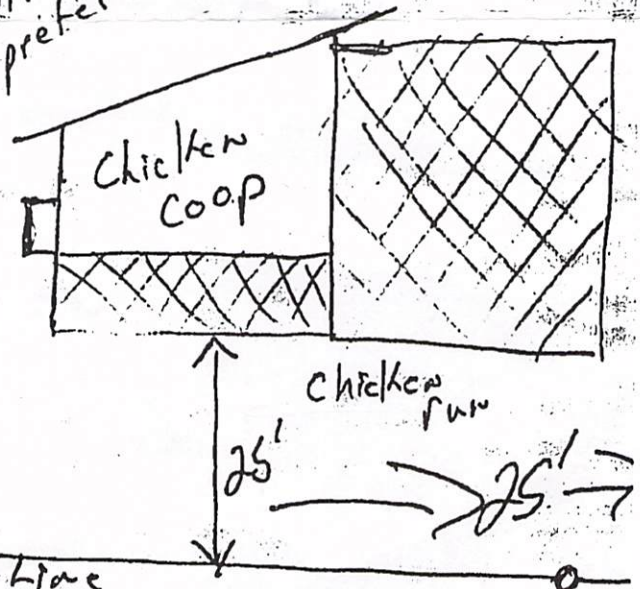 prefer
Chicken
coop
Chicken
run
25'
25'
Line